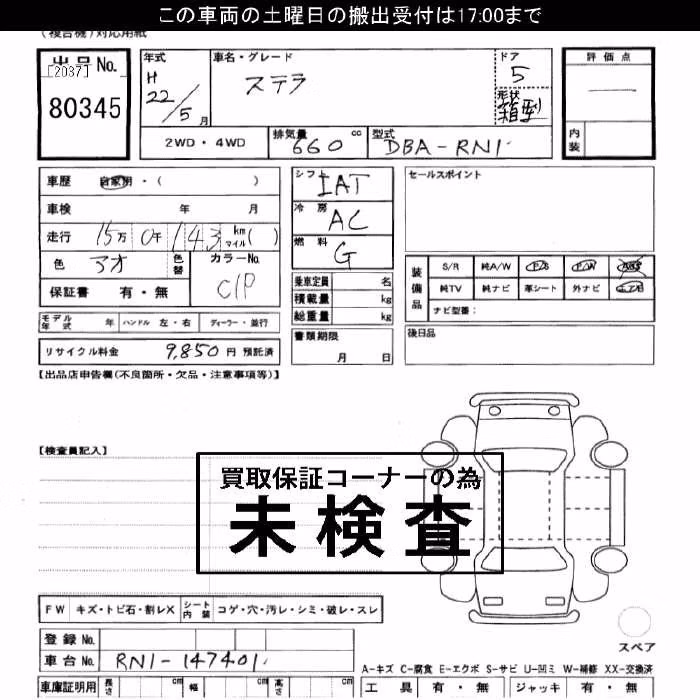 この車両の土曜日の搬出受付は17:00まで
(複合機)対応用紙
出品No.
[2037]
80345
年式
H 22/5 月
車名・グレード
ステラ
ドア
5
形状
箱型
評価点
内装
2WD・4WD
排気量 660 cc
型式 DBA-RN1
車歴 自家用・( )
車検 年 月
走行 15万 0千 143 km マイル( )
色 アオ 色替 カラーNo. C1P
保証書 有・無
シフト IAT
冷房 AC
燃料 G
乗車定員 名
積載量 kg
総重量 kg
セールスポイント
装備品
S/R 純A/W P/S P/W
純TV 純ナビ 革シート 外ナビ エアB
ナビ型番:
モデル年式 年 ハンドル 左・右 ディーラー・並行
リサイクル料金 9,850 円 預託済
書類期限
月 日
後日品
【出品店申告欄(不良箇所・欠品・注意事項等)】
【検査員記入】
買取保証コーナーの為
未検査
FW キズ・トビ石・割レX シート内装 コゲ・穴・汚レ・シミ・破レ・スレ
登録No.
車台No. RN1-147401
スペア
A-キズ C-腐食 E-エクボ S-サビ U-凹ミ W-補修 XX-交換済
車庫証明用 長さ cm 幅 cm 高さ cm
工具 有・無 ジャッキ 有・無